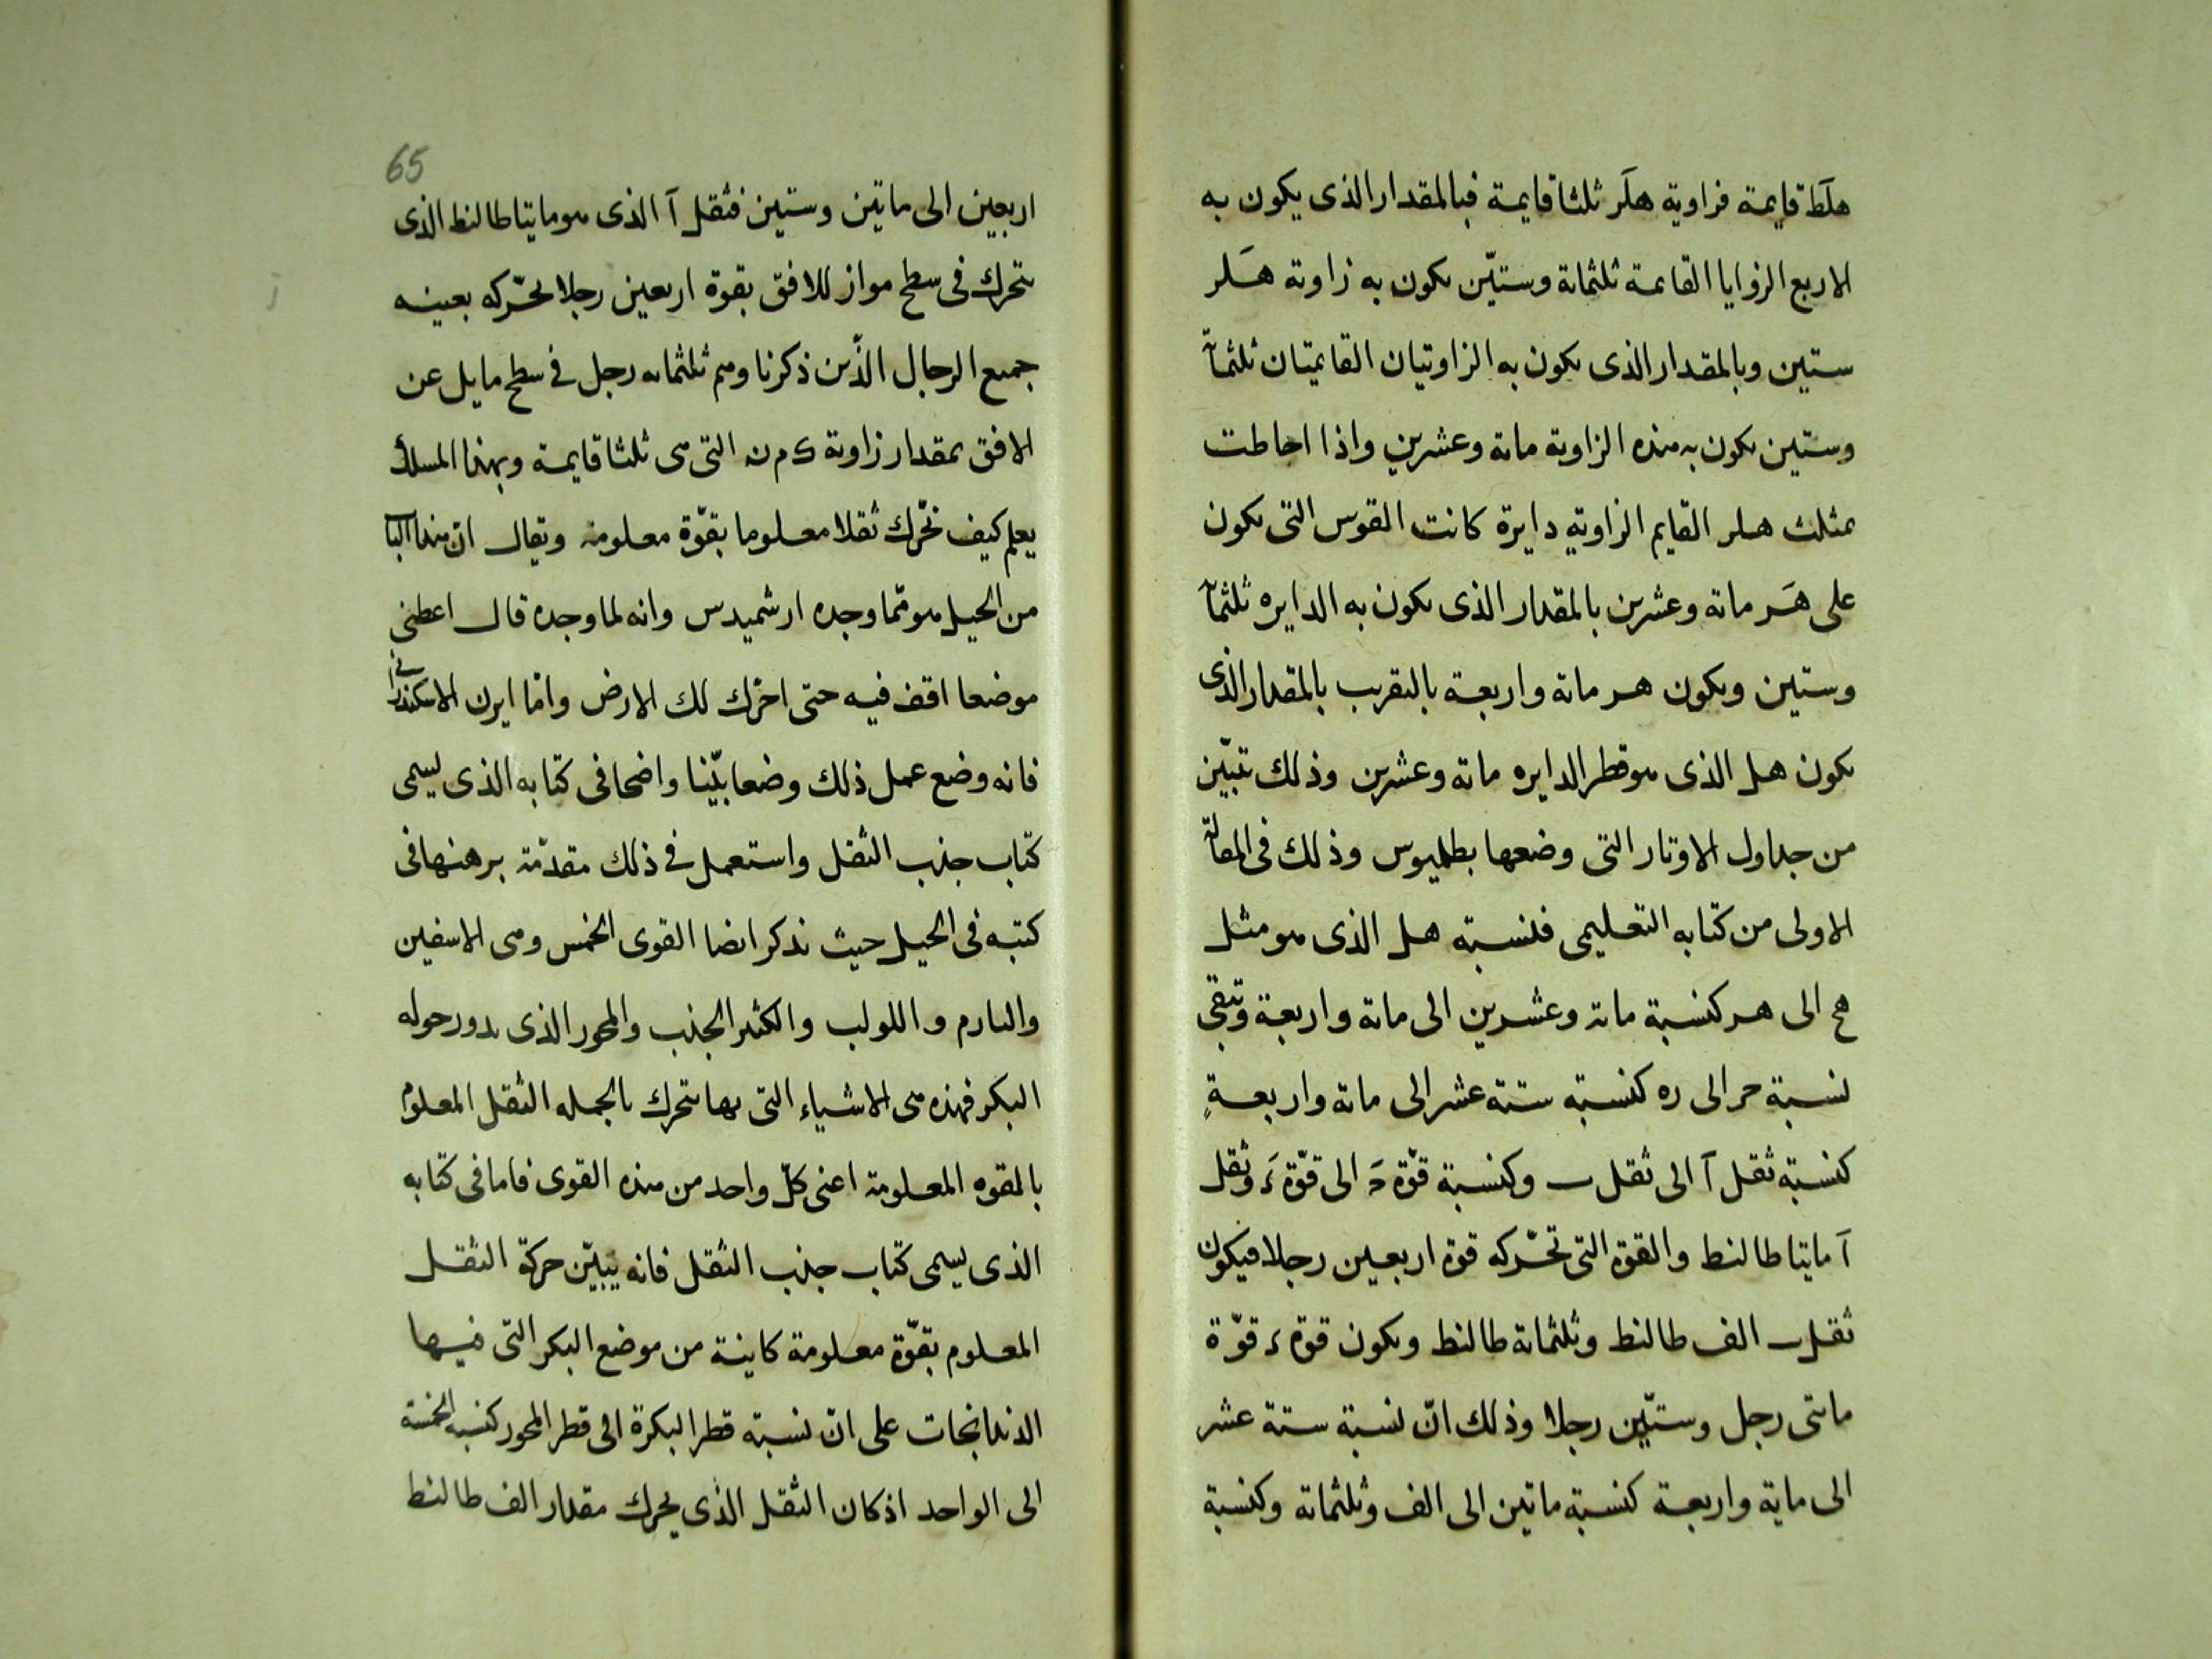 هلط قايمة فزاوية هلر ثلثا قايمة فبالمقدار الذى يكون به
الاربع الزوايا القايمة ثلثماىة وستّين ىكون به زاوىة هلر
ستين وبالمقدار الذى ىكون به الزاوىتيان القايمتيان ثلثماىة
وستين ىكون به هذه الزاوىة ماىة وعشرين واذا احاطت
بمثلث هلر القايم الزاويه دايرة كانت القوس التى ىكون
على هر ماىة وعشرىن بالمقدار الذى ىكون به الدايره ثلثماىة
وستين وىكون هر ماىة واربعة بالتقرىب بالمقدار الذى
ىكون هل الذى هو قطر الدايره ماىة وعشرىن وذلك تبيّن
من جداول الاوتار التى وضعها بطلميوس وذلك فى المقالة
الاولى من كتابه التعليمى فنسبة هل الذى هو مثل
هح الى هر كنسبة ماىة وعشرين الى ماىة واربعة وتبقى
نسبة حر الى ره كنسبة ستة عشر الى ماىة واربعةٍ
كنسبة ثقل آ الى ثقل ٮ وكنسبة قوّة حَ الى قوّة ءَ وثقل
آ مايتا طالنط والقوة التى تحرّكه قوة اربعين رجلا فيكون
ثقل ٮ الف طالنط وثلثماىة طالنط وىكون قوة ء قوّة
ماىتى رجل وستّين رجلا وذلك انّ نسبة ستة عشر
الى ماية واربعة كنسبة ماتين الى الف وثلثماىة وكنسبة
65
اربعين الى ماتين وستين فثقل آ الذى هو مايتا طالنط الذى
ىتحرك فى سطح مواز للافق بقوة اربعين رجلا يحرّكه بعينه
جميع الرجال الذّىن ذكرنا وهم ثلثماىه رجل فى سطح مايل عن
الافق بمقدار زاوىة ك م ن التى هى ثلثا قايمة وبهذا المسلك
يعلم كيف نحّرك ثقلا معلوما بقوّة معلومة ويقال انّ هذا الباب
من الحيل هو ممّا وجده ارشميدس وانه لما وجده قال اعطنى
موضعا اقف فيه حتى احرّك لك الارض وامّا ايرن الاسكندرانى
فانه وضع عمل ذلك وضعا بيّنا واضحا فى كتابه الذى يسمى
كتاب جذب الثقل واستعمل فى ذلك مقدّمة برهنها فى
كتبه فى الحيل حيث ىذكر اىضا القوى الخمس وهى الاسفين
والبارم واللولب والكثىر الجذب والمحور الذى ىدور حوله
البكر فهذه هى الاشياء التى بها ىتحرك بالجمله الثقل المعلوم
بالقوه المعلومة اعنى كلّ واحد من هذه القوى فاما فى كتابه
الذى يسمى كتاب جذب الثقل فانه يبيّن حركة الثقل
المعلوم بقوّة معلومة كاينة من موضع البكر التى فيها
الدندانجات على انّ نسبة قطر البكرة الى قطر المحور كنسبة الخمسة
الى الواحد اذ كان الثقل الذى يحرك مقدار الف طالنط